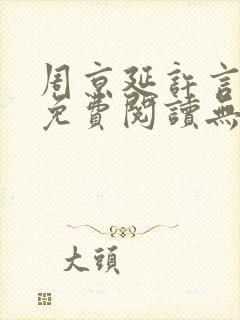 周京延許言
免費閱讀無
大頭